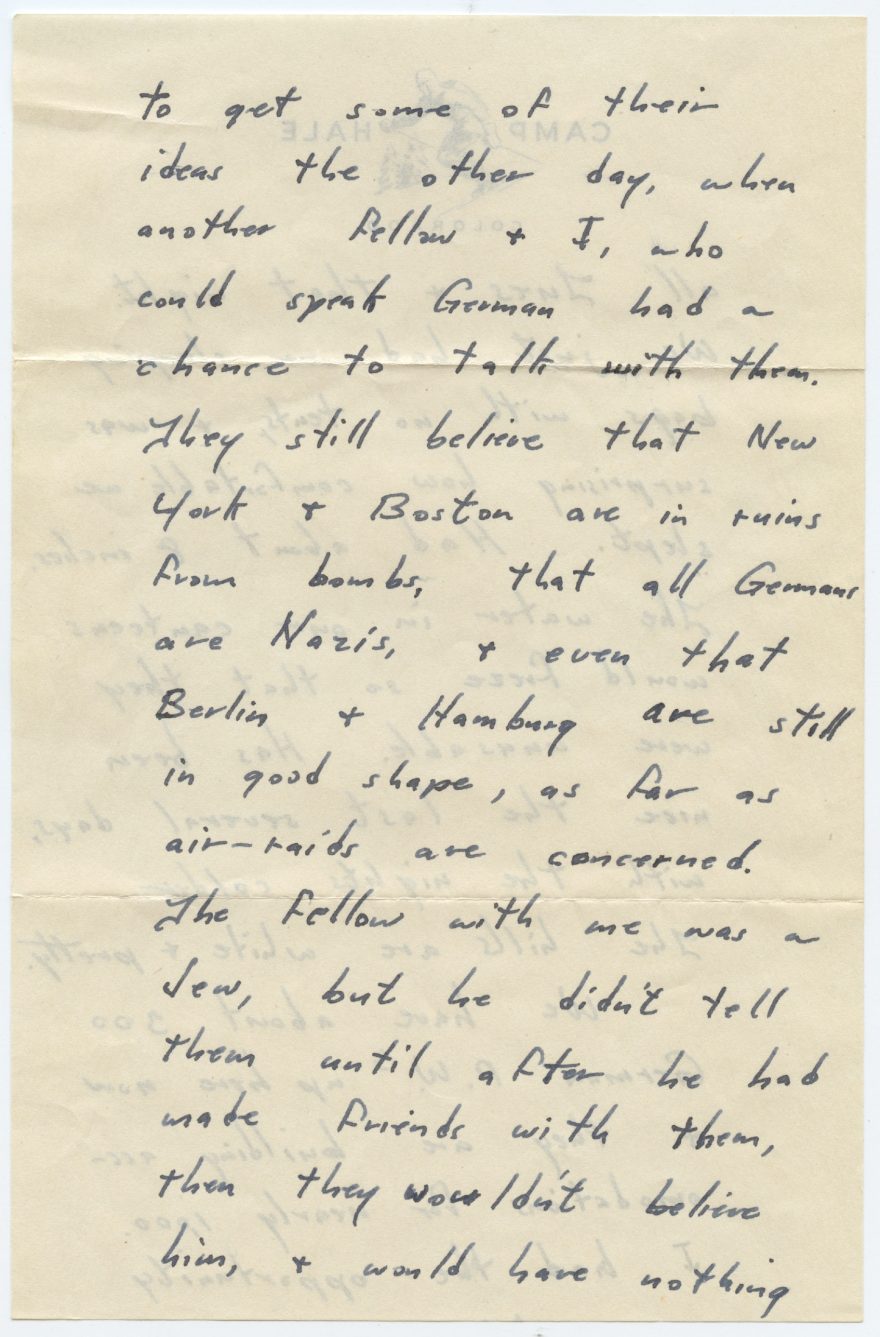 to get some of their
ideas the other day, when
another fellow + I, who
could speak German had a
chance to talk with them.
They still believe that New
York + Boston are in ruins
from bombs, that all Germans
are Nazis, + even that
Berlin + Hamburg are still
in good shape, as far as
air-raids are concerned.
The fellow with me was a
Jew, but he didn't tell
them until after he had
made friends with them,
then they wouldn't believe
him, + would have nothing